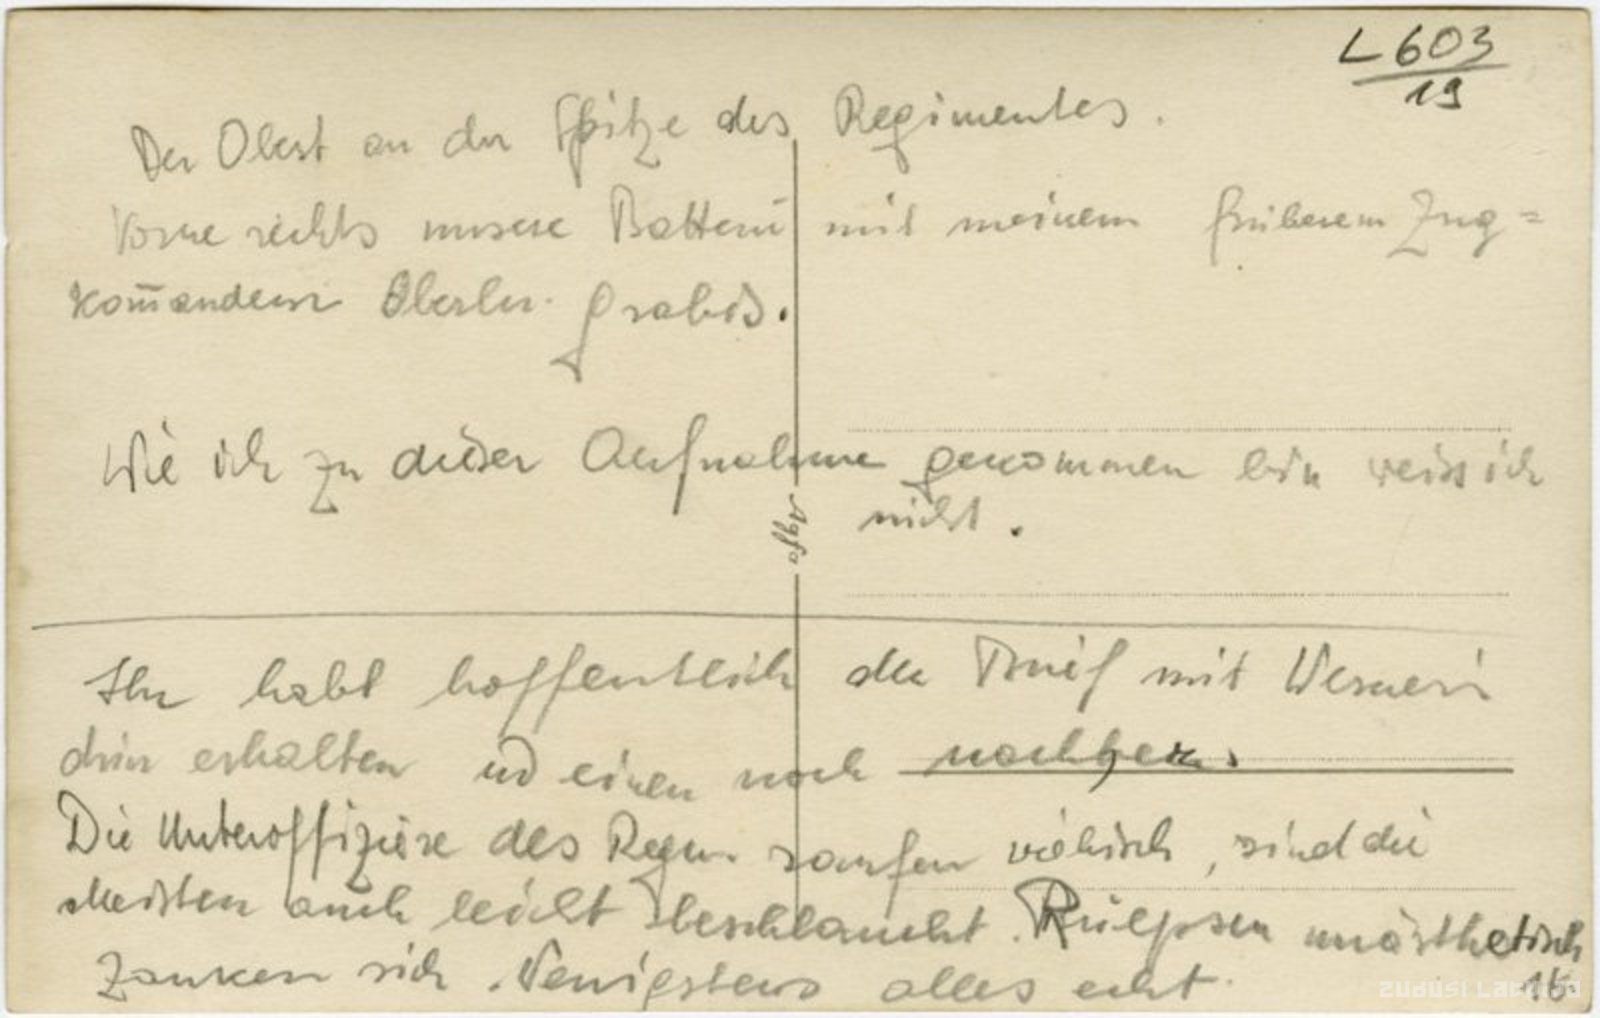 L 603
19
Der Oberst an der Spitze des Regimentes.
Vorne rechts unsere Batterie mit meinem früherem Zug=
kom̄andeur Oberln.
Wie ich zu dieser Aufnahme gekommen bin weiss ich
nicht.
Agfa
Ihr habt hoffentlich den Brief mit
drin erhalten und einen noch
Die Unteroffiziere des Regim. saufen viehisch, sind die
Meisten auch leicht beschlaucht. Rülpsen unästhetisch
Zanken sich. Wenigstens alles echt.
15.